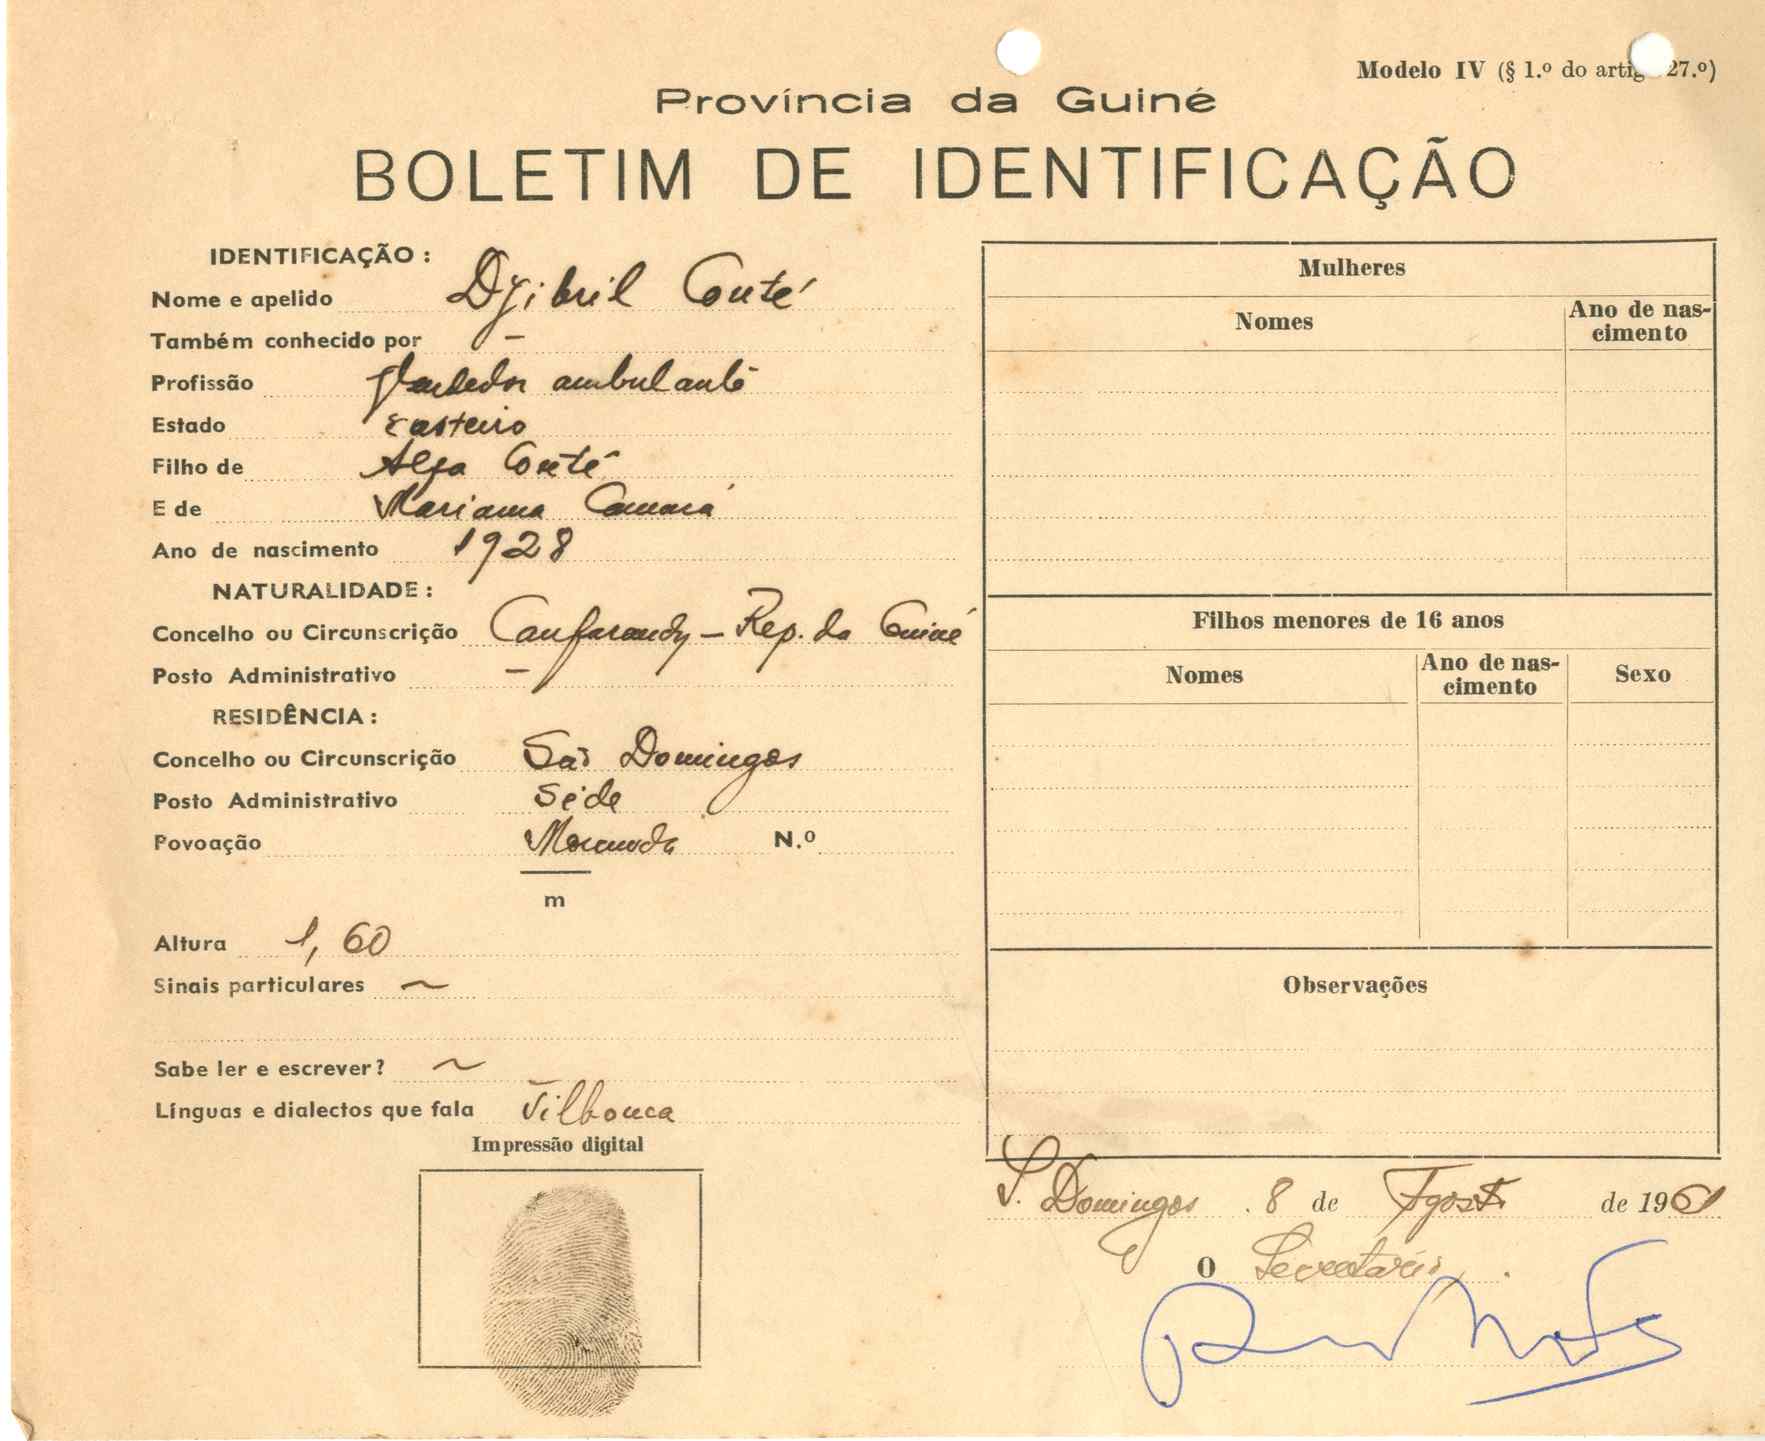 Modelo IV (§ 1.º do artig 27.º)
Província da Guiné
BOLETIM DE IDENTIFICAÇÃO
IDENTIFICAÇÃO :
Nome e apelido Djibril Conté
Também conhecido por –
Profissão Vendedor ambulante
Estado
Filho de Alfa Conté
E de Mariama Camará
Ano de nascimento 1928
NATURALIDADE :
Concelho ou Circunscrição Canfarandy – Rep. da Guiné
Posto Administrativo –
RESIDÊNCIA :
Concelho ou Circunscrição São Domingos
Posto Administrativo Séde
Povoação N.º
m
Altura 1,60
Sinais particulares ~
Sabe ler e escrever? ~
Línguas e dialectos que fala
Impressão digital
Mulheres
Nomes
Ano de nas-
cimento
Filhos menores de 16 anos
Nomes
Ano de nas-
cimento
Sexo
Observações
S. Domingos 8 de Agosto de 1961
O Secretário